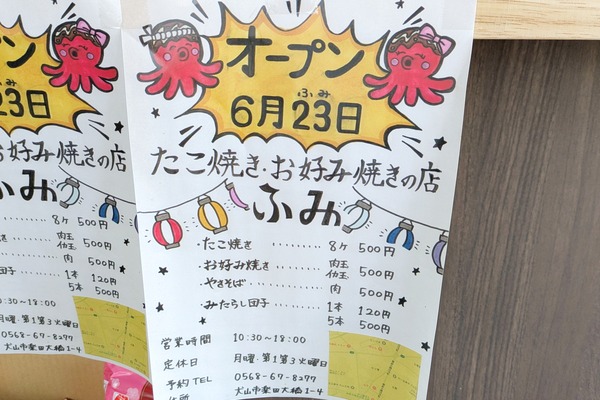 オープン
ふみ
6月23日
たこ焼き・お好み焼きの店
ふみ
・たこ焼き ･･････････ 8ケ 500円
・お好み焼き ･･････ 肉玉 500円
イカ玉
・やきそば ･･････････ 肉 500円
・みたらし団子 ･････ 1本 120円
5本 500円
営業時間 10:30~18:00
定休日 月曜・第1第3火曜日
予約TEL 0568-67-8277
オープン
23日
お好み焼きの店
ふみ
8ケ 500円
肉玉 500円
イカ玉
肉 500円
団子 1本 120円
5本 500円
0:30~18:00
月曜・第1第3火曜日
0568-67-8277